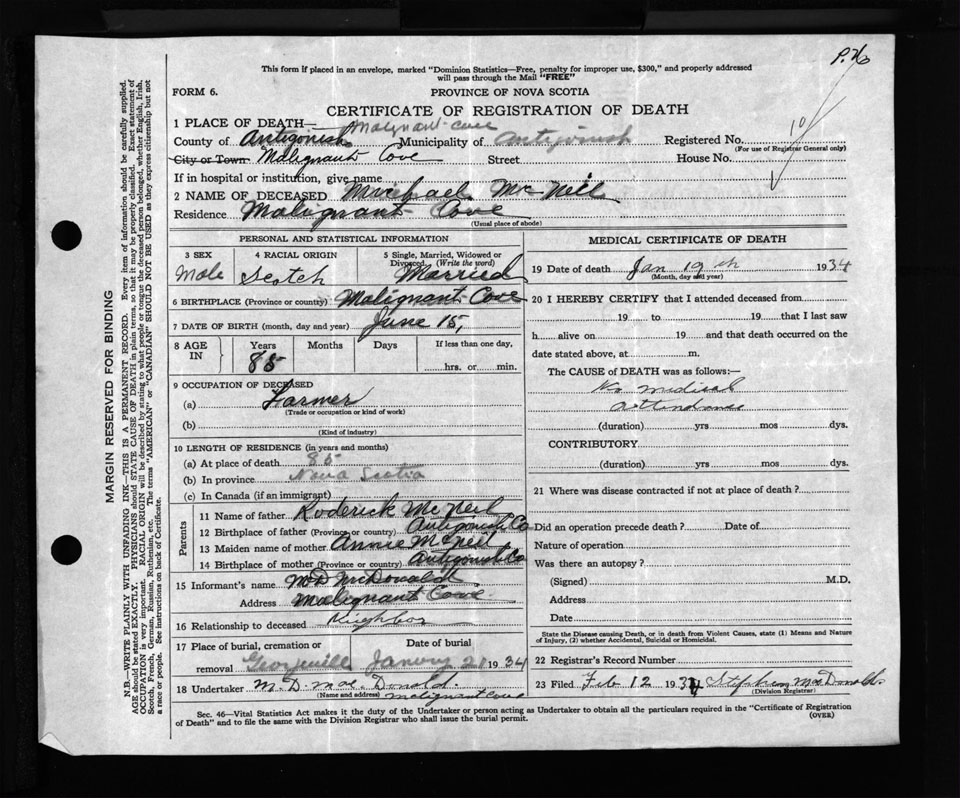 P.Ho
This form if placed in an envelope, marked "Dominion Statistics—Free, penalty for improper use, $300," and properly addressed
will pass through the Mail "FREE"
FORM 6. PROVINCE OF NOVA SCOTIA
CERTIFICATE OF REGISTRATION OF DEATH
1 PLACE OF DEATH— Malignant Cove
County of Antigonish Municipality of Antigonish Registered No. 10
(For use of Registrar General only)
City or Town Malignant Cove Street House No.
If in hospital or institution, give name
2 NAME OF DECEASED Michael Mc Neil
Residence Malignant Cove
(Usual place of abode)
PERSONAL AND STATISTICAL INFORMATION
3 SEX 4 RACIAL ORIGIN 5 Single, Married, Widowed or
Divorced (Write the word)
Male Scotch Married
6 BIRTHPLACE (Province or country) Malignant Cove
7 DATE OF BIRTH (month, day and year) June 15,
8 AGE IN Years Months Days If less than one day,
85 hrs. or min.
9 OCCUPATION OF DECEASED
(a) Farmer
(Trade or occupation or kind of work)
(b)
(Kind of industry)
10 LENGTH OF RESIDENCE (in years and months)
(a) At place of death 85
(b) In province Nova Scotia
(c) In Canada (if an immigrant)
Parents
11 Name of father Roderick Mc Neil
12 Birthplace of father (Province or country) Antigonish Co
13 Maiden name of mother Annie McNeil
14 Birthplace of mother (Province or country) Antigonish Co
15 Informant's name M D McDonald
Address Malignant Cove
16 Relationship to deceased Neighbor
17 Place of burial, cremation or Date of burial
removal Georgeville Janury 21 1934
18 Undertaker M. D. Mac Donald.
(Name and address) Malignant Cove
MEDICAL CERTIFICATE OF DEATH
19 Date of death Jan 19th 1934
(Month, day and year)
20 I HEREBY CERTIFY that I attended deceased from
19 to 19 that I last saw
h alive on 19 and that death occurred on the
date stated above, at m.
The CAUSE of DEATH was as follows:—
No medical
attendance
(duration) yrs mos dys.
CONTRIBUTORY
(duration) yrs. mos. dys.
21 Where was disease contracted if not at place of death?
Did an operation precede death? Date of
Nature of operation
Was there an autopsy?
(Signed) M.D.
Address
Date
State the Disease causing Death, or in death from Violent Causes, state (1) Means and Nature
of Injury, (2) whether Accidental, Suicidal or Homicidal.
22 Registrar's Record Number
23 Filed Feb 12 1934 Stephen MacDonald
(Division Registrar)
Sec. 46—Vital Statistics Act makes it the duty of the Undertaker or person acting as Undertaker to obtain all the particulars required in the "Certificate of Registration
of Death" and to file the same with the Division Registrar who shall issue the burial permit. (OVER)
MARGIN RESERVED FOR BINDING
N.B.—WRITE PLAINLY WITH UNFADING INK—THIS IS A PERMANENT RECORD. Every item of information should be carefully supplied.
AGE should be stated EXACTLY. PHYSICIANS should STATE CAUSE OF DEATH in plain terms, so that it may be properly classified. Exact statement of
OCCUPATION is very important. RACIAL ORIGIN will be described by stating to what people or tongue the deceased person belonged, whether English, Irish,
Scotch, French, German, Russian, Ruthenian, etc. The terms "AMERICAN" or "CANADIAN" SHOULD NOT BE USED as they express citizenship but not
a race or people. See instructions on back of Certificate.